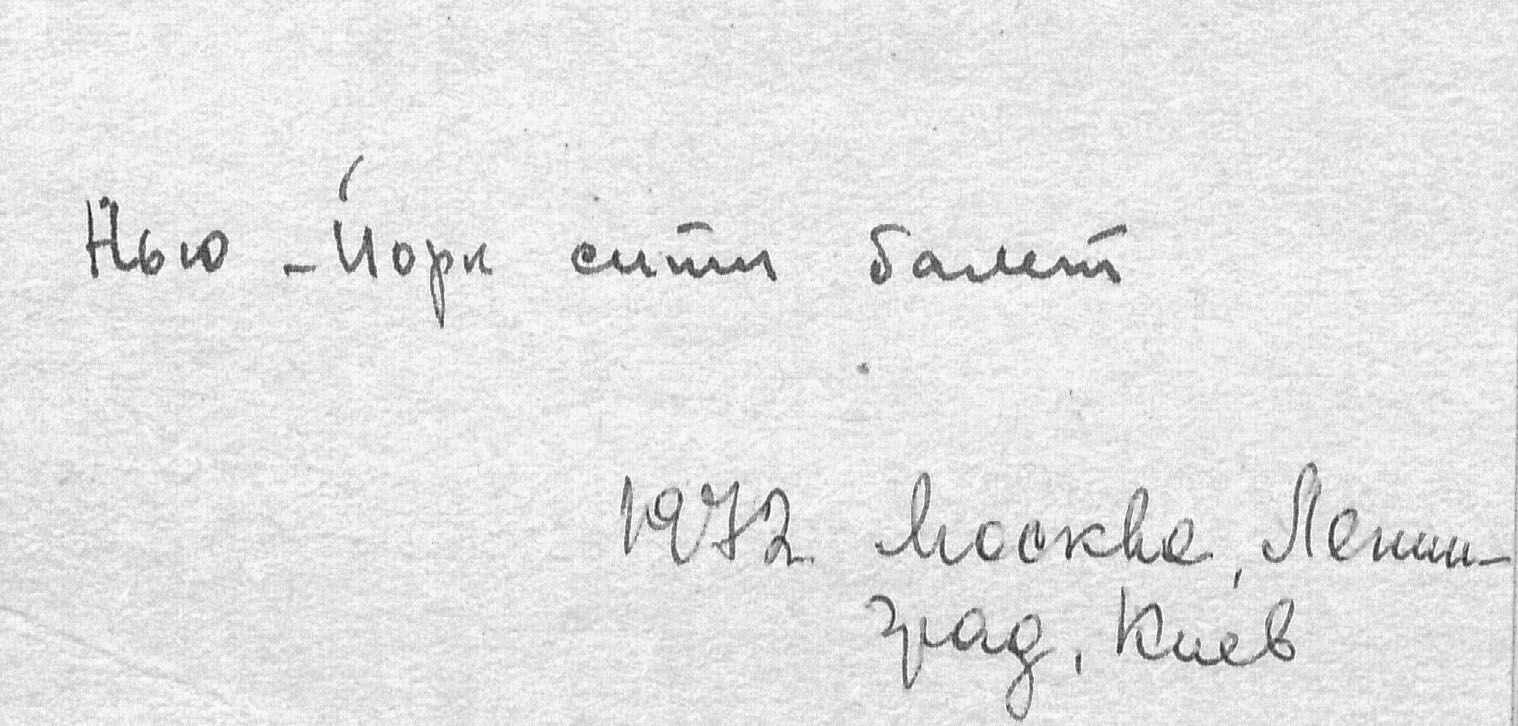 Нью-Йорк сити балет
1972 Москва, Ленин-
град, Киев